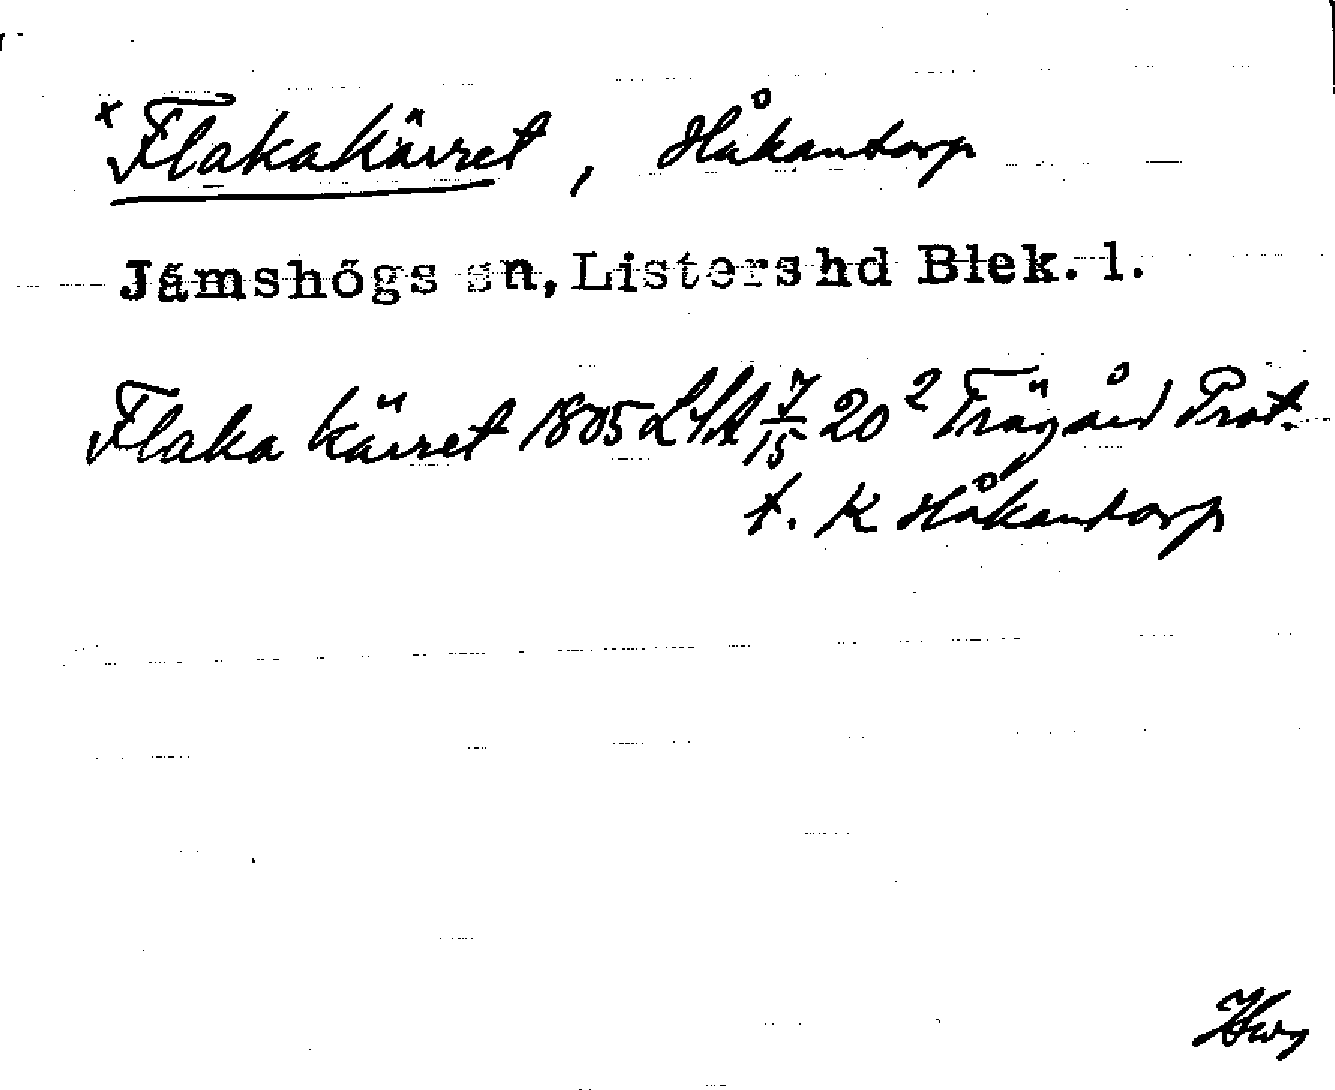 x Flakakärret, Håkantorp
Jämshögs sn, Listers hd Blek. l.
Flaka kärret 1805 LSA 7/15 20² Trägård Prot.
t. K Håkantorp